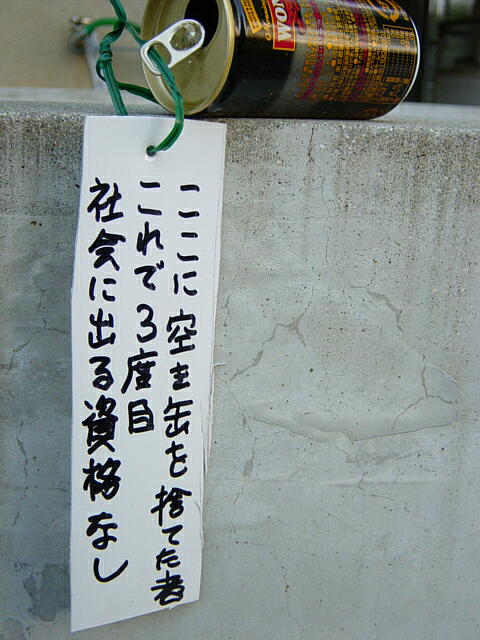 ここに空き缶を捨てた者
これで3度目
社会に出る資格なし
WON